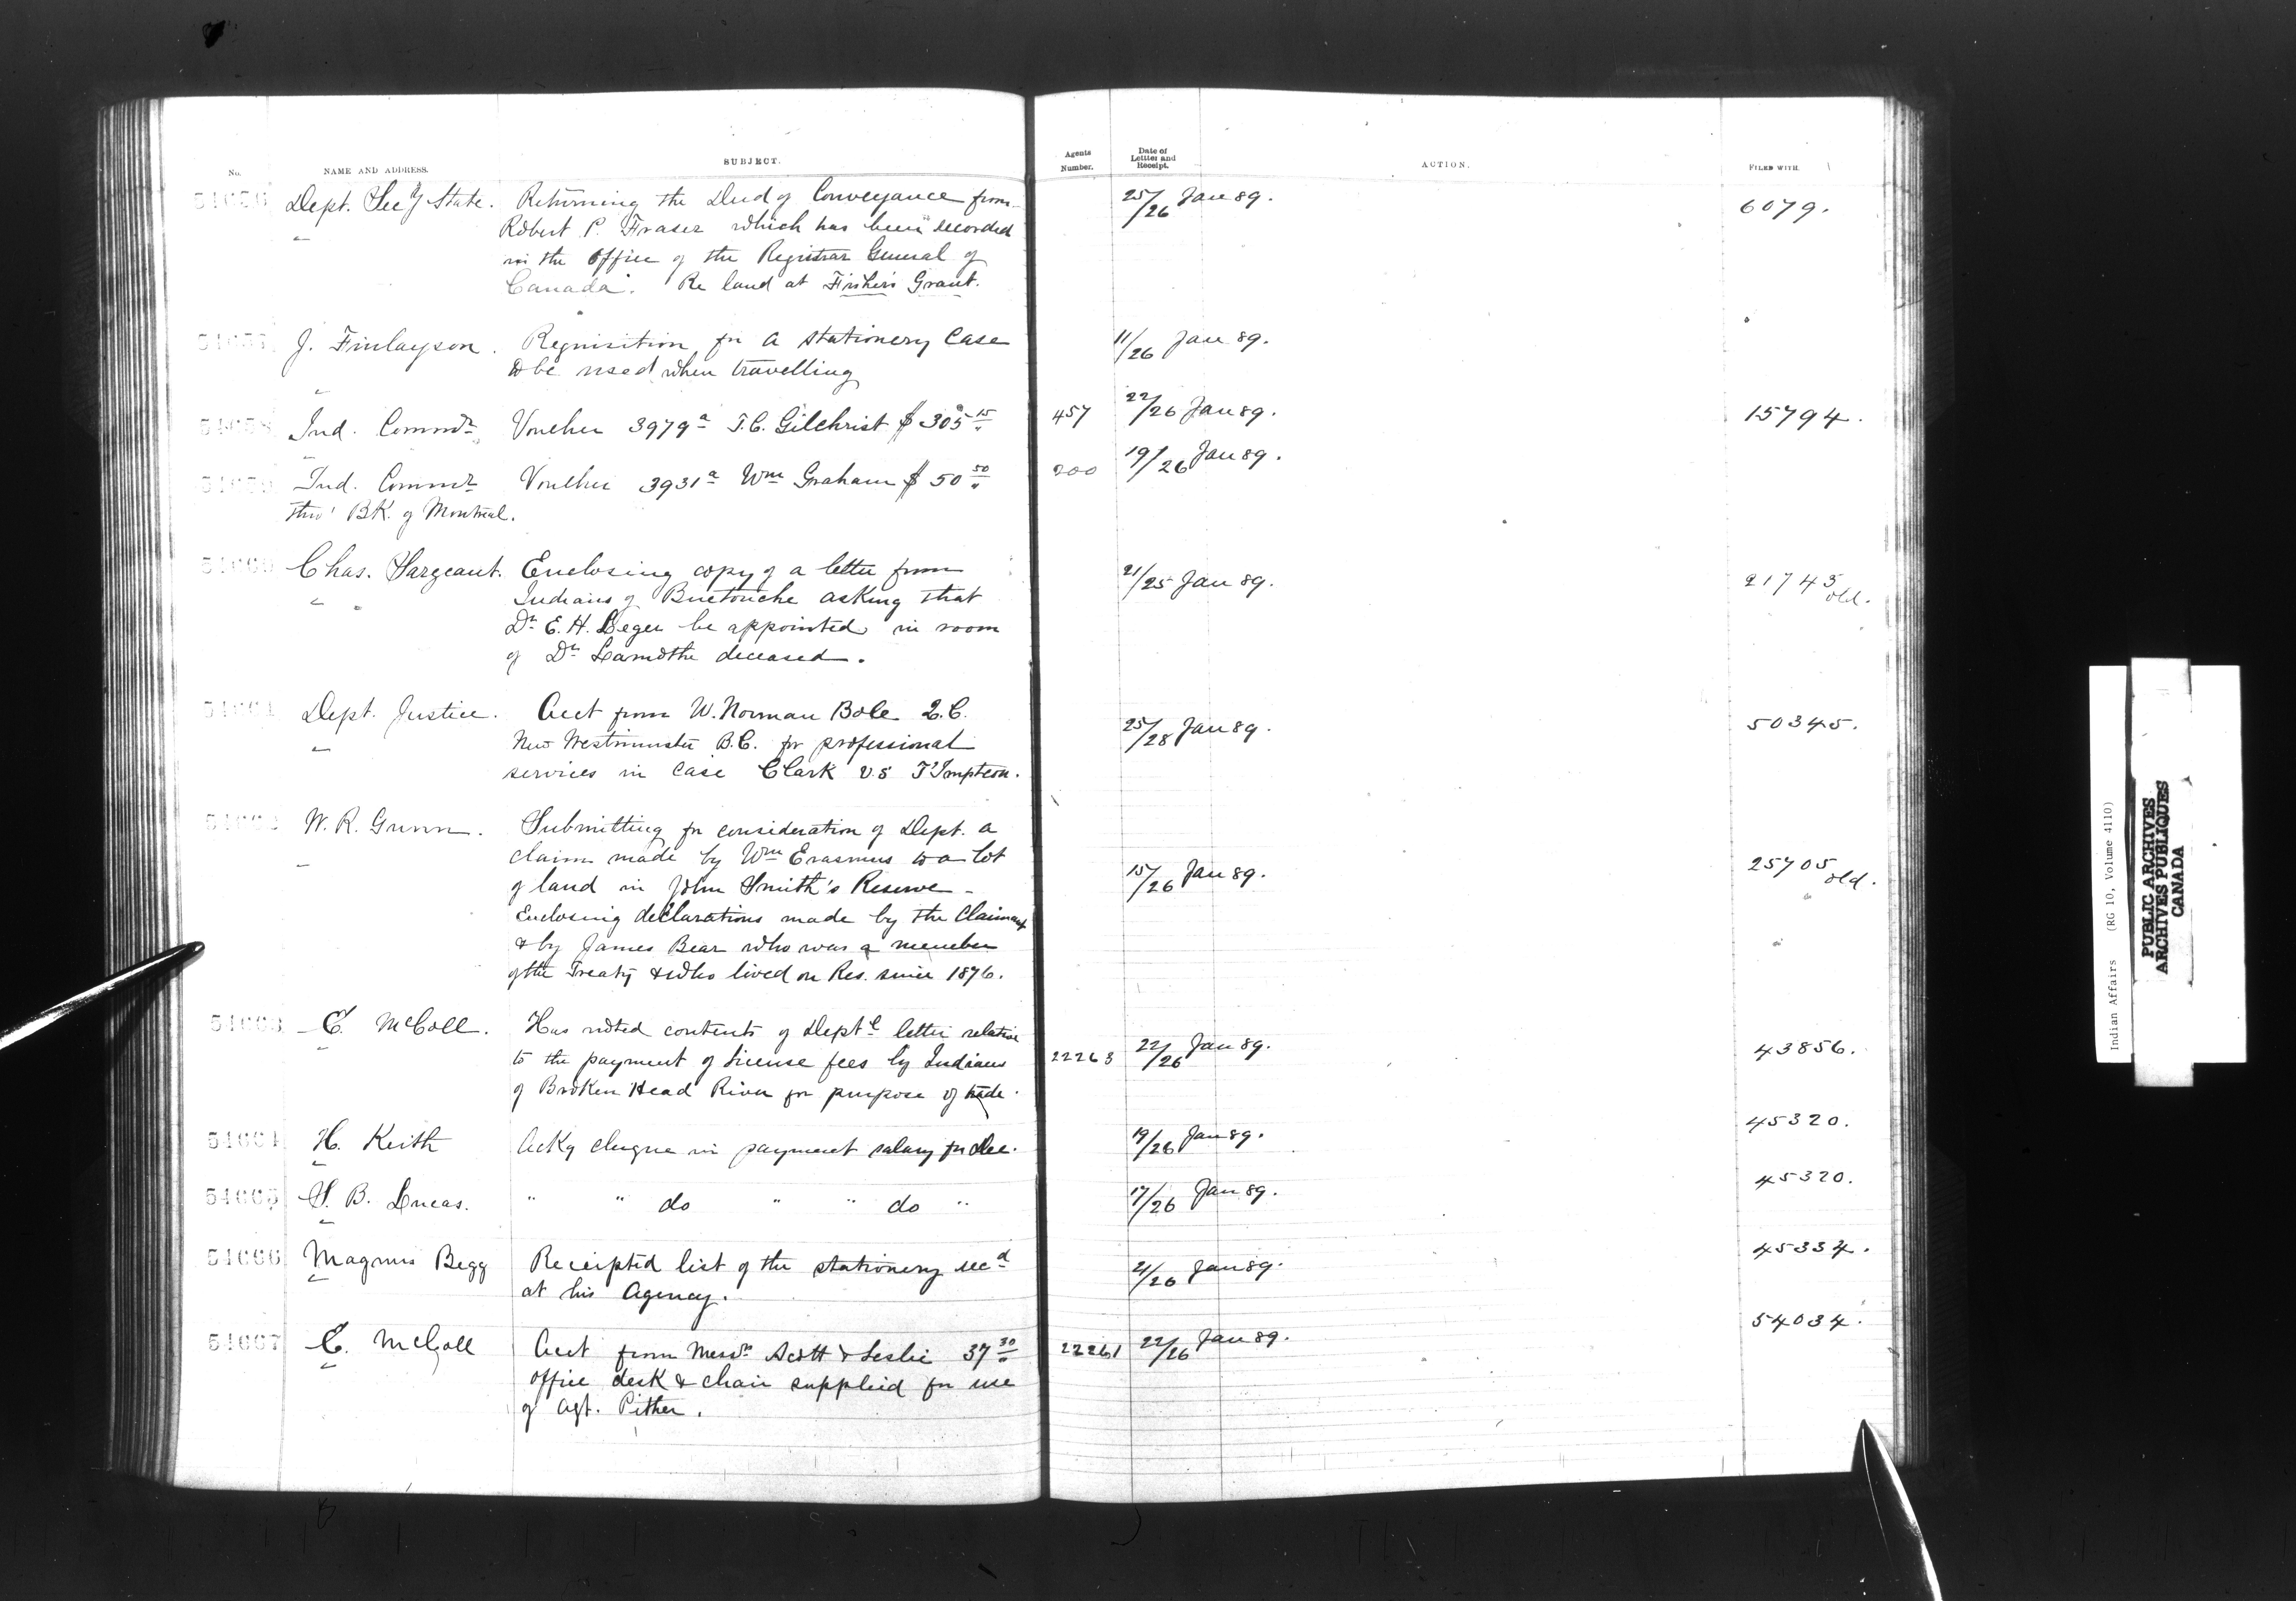 No. NAME AND ADDRESS. SUBJECT. Agents Number. Date of Letter and Receipt. ACTION. FILED WITH.
54056 Dept. Secy State. Returning the Deed of Conveyance from 25/26 Jan 89. 6079.
Robert P. Fraser which has been "recorded
in the Office of the Registrar General of
Canada". Re land at Fisher's Grant.
54057 J. Finlayson. Requisition for a stationery case 11/26 Jan 89.
to be used when travelling
54058 Ind. Commr. Voucher 3979a T.C. Gilchrist $305 15 457 22/26 Jan 89. 15794.
54059 Ind. Commr Voucher 3931a Wm Graham $50 50 200 19/26 Jan 89.
thro' BK. of Montreal.
54060 Chas. Sargeant. Enclosing copy of a letter from 21/25 Jan 89. 21743 old.
Indians of Buctouche asking that
Dr. E. H. Leger be appointed in room
of Dr Lamothe deceased.
54061 Dept. Justice. Acct from W. Norman Bole Q.C. 25/28 Jan 89. 50345.
New Westminster B.C. for professional
services in case Clark v.s
54062 W. R. Gunn. Submitting for consideration of Dept. a
claim made by Wm Erasmus to a lot
of land in John Smith's Reserve - 15/26 Jan 89. 25705 old.
Enclosing declarations made by the Claimant
& by James Bear who was a member
of the Treaty & who lived on Res. since 1876.
54063 E. McColl. Has noted contents of Deptl letter relative
to the payment of License fees by Indians 22263 22/26 Jan 89. 43856.
of Broken Head River for purpose of trade.
54064 H. Keith Ackg cheque in payment salary for Dec. 19/26 Jan 89. 45320.
54065 S. B. Lucas. " " do " " do " 17/26 Jan 89. 45320.
54066 Magnus Begg Receipted list of the stationery recd 21/26 Jan 89. 45334.
at his Agency.
54067 E. McColl Acct from Messrs Scott & Leslie 37 30 22261 22/26 Jan 89. 54034.
office desk & chair supplied for use
of Agt. Pither.
Indian Affairs (RG 10, Volume 4110)
PUBLIC ARCHIVES
ARCHIVES PUBLIQUES
CANADA